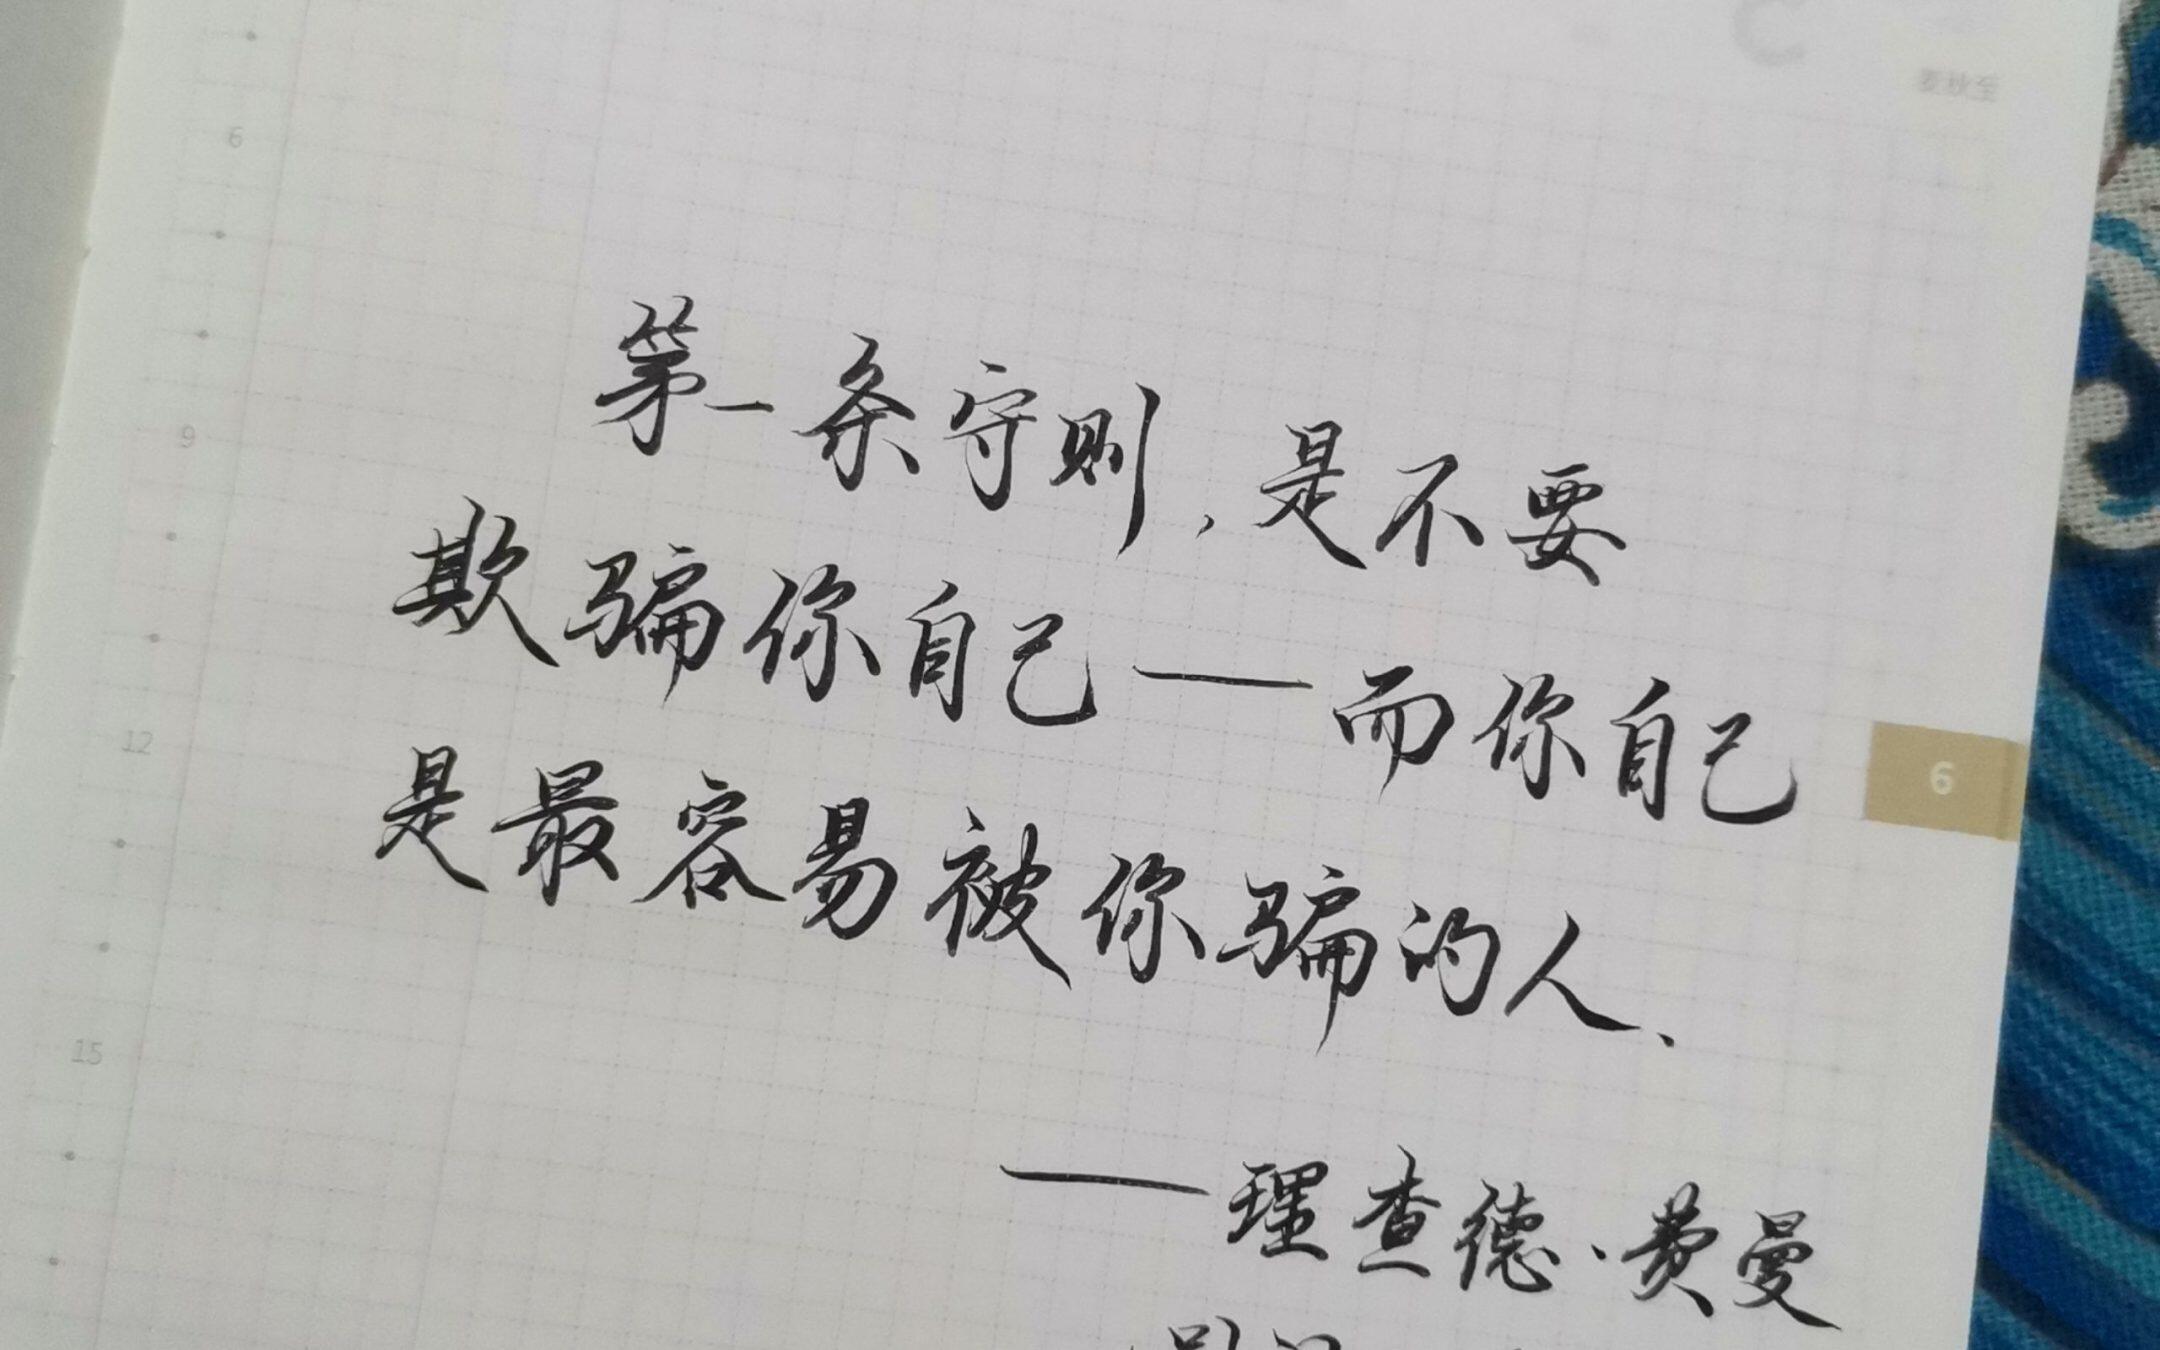 6
9
12
15
第一条守则，是不要
欺骗你自己——而你自己
是最容易被你骗的人、
——理查德·费曼
6